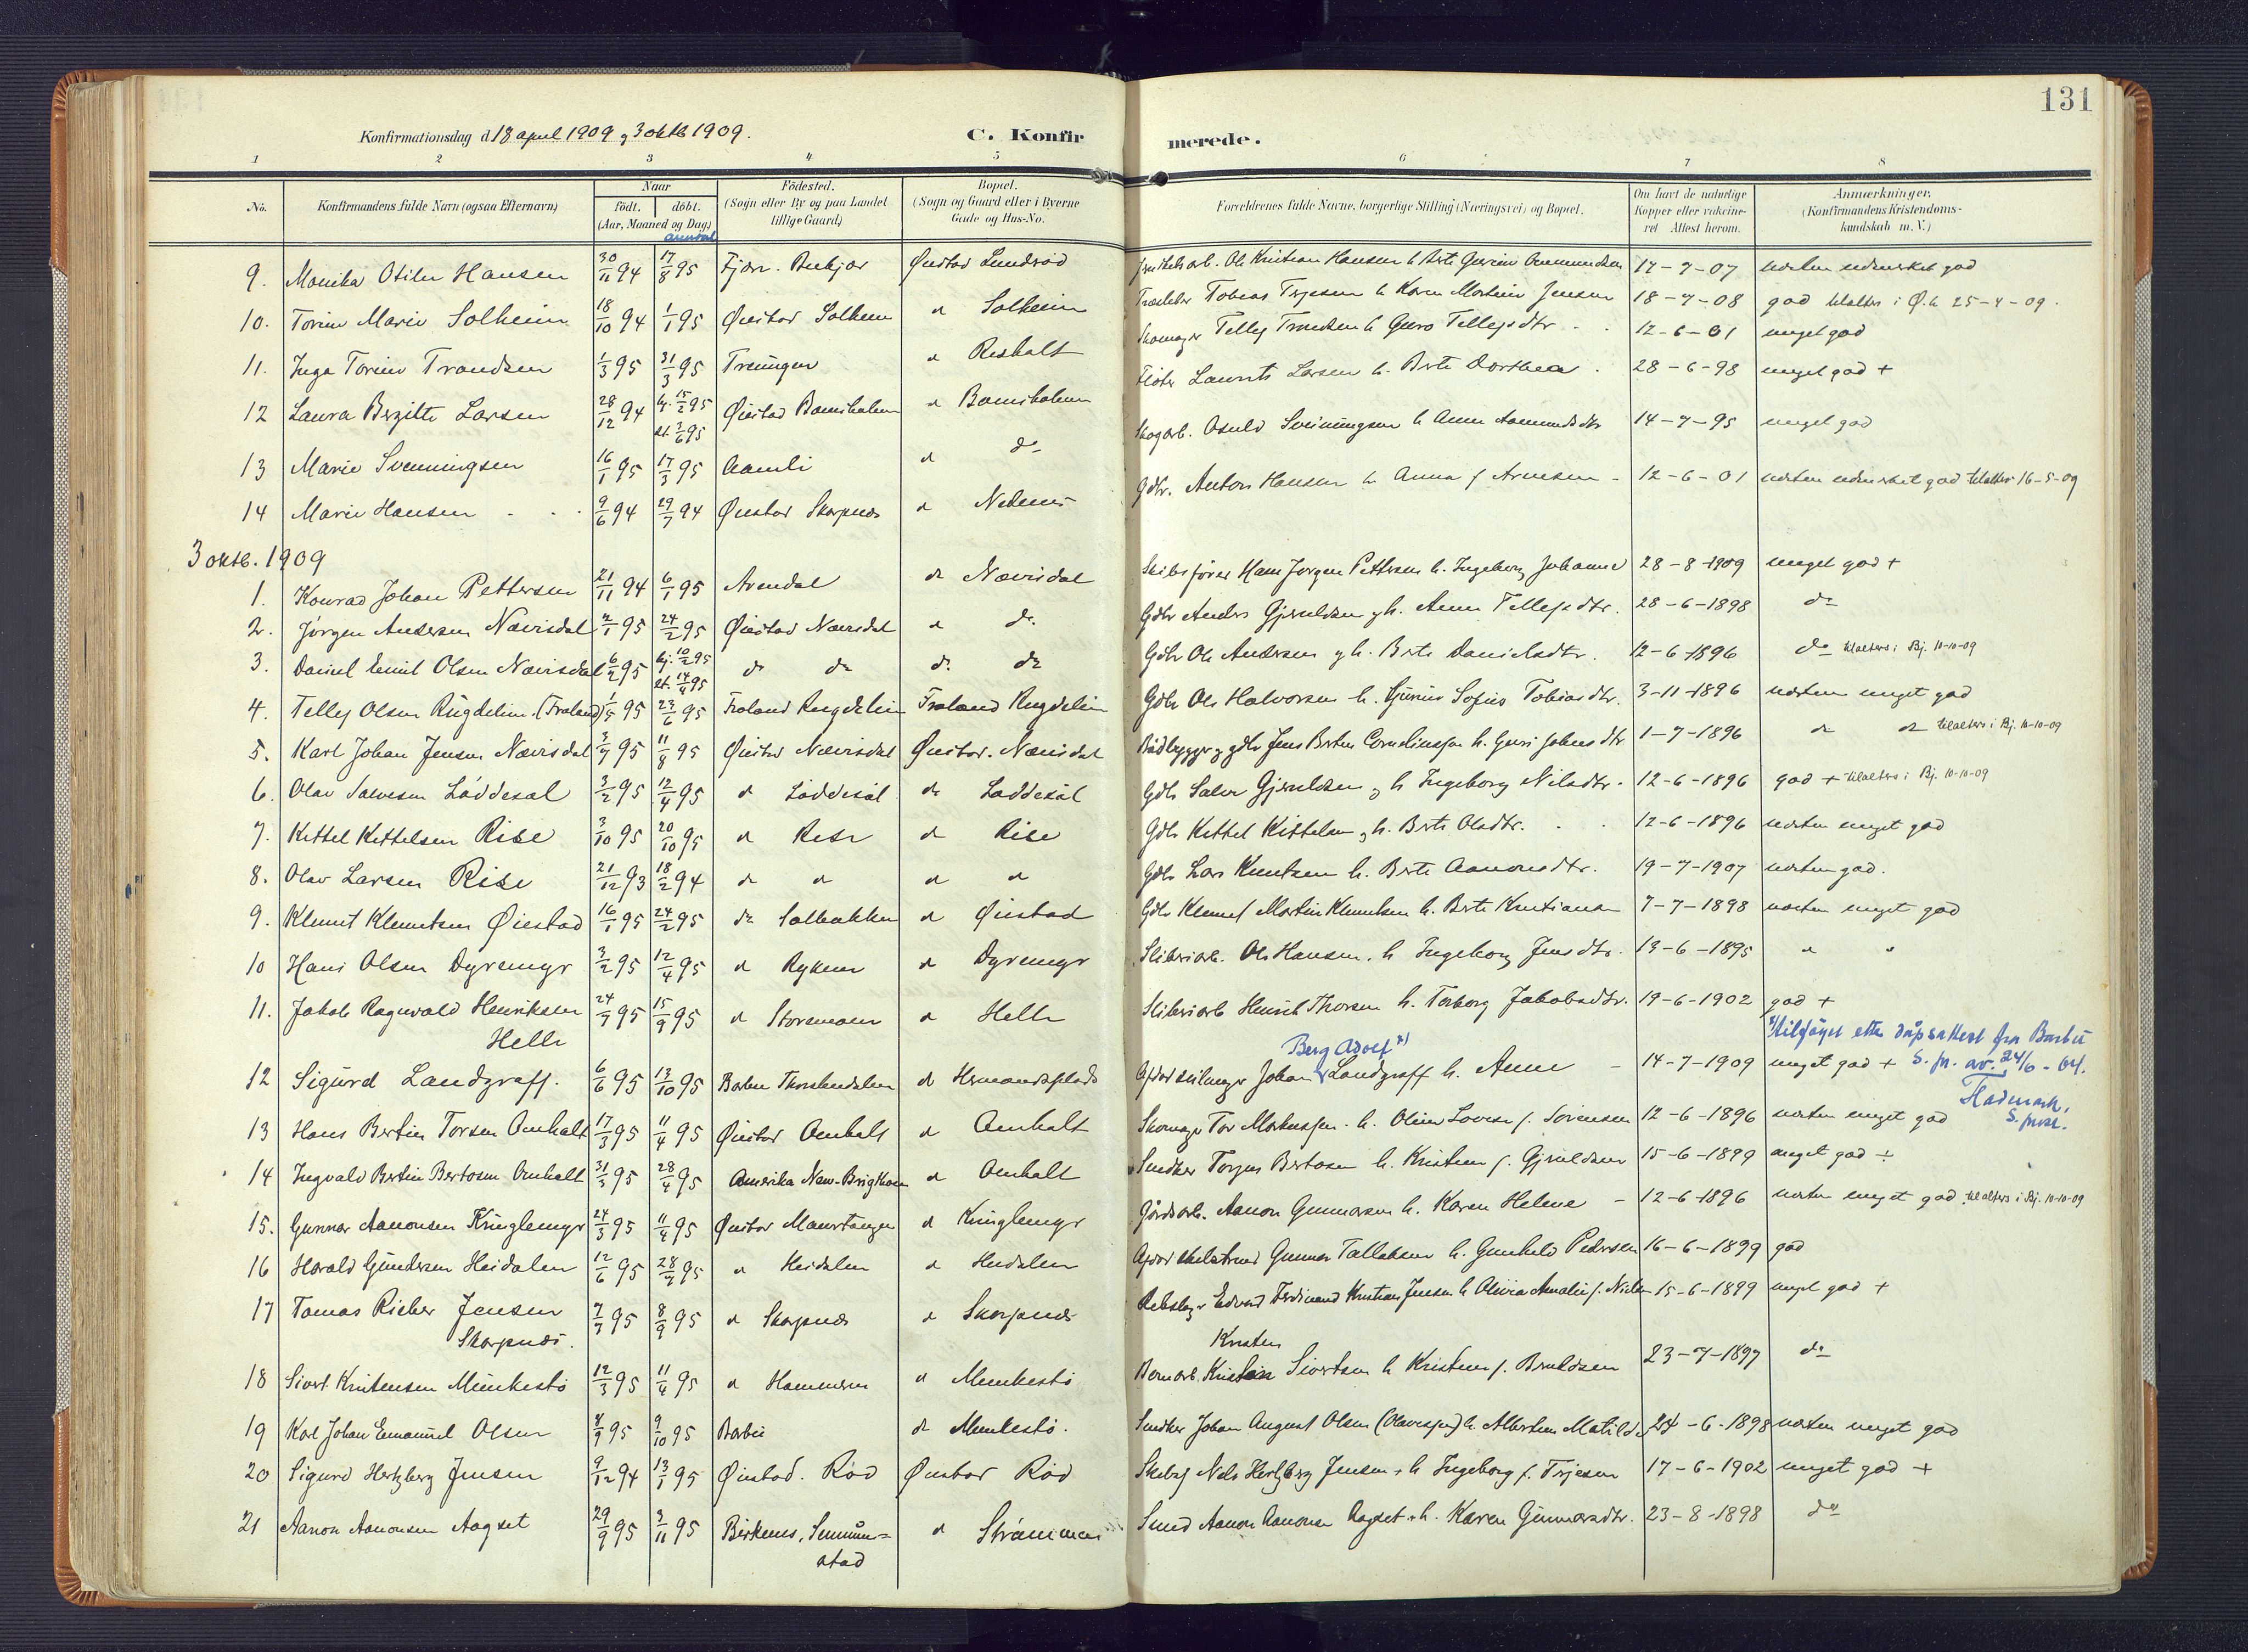 131
Konfirmationsdag d. 18 april 1909 og 3 oktb 1909.
C. Konfirmerede.
1 2 3 4 5 6 7 8
No. Konfirmandens fulde Navn (ogsaa Efternavn) Naar födt. döbt. (Aar, Maaned og Dag.) Födested. (Sogn eller By og paa Landet tillige Gaard) Bopæl. (Sogn og Gaard eller i Byerne Gade og Hus-No. Forældrenes fulde Navne, borgerlige Stilling (Næringsvei) og Bopæl. Om havt de naturlige Kopper eller vakcineret Attest herom. Anmærkninger. (Konfirmandens Kristendomskundskab m. V.)
Arendal
9. Monika Otilie Hansen 30/11 94 17/8 95 Øiestad Lundrød Ole Kristian Hansen 17-7-07 næsten udmerket god
10. Torine Marie Solheim 18/10 94 1/1 95 Øiestad Solheim d Solheim Tobias Terjesen h. Karen Martine Jensen 18-7-08 god 25-4-09.
11. Inga Torine Trondsen 1/3 95 31/3 95 Treungen d Reshalt Skomager Tellef Trondsen h. Guro Tellefsdtr 12-6-01 meget god
12 Laura Bergitte Larsen 28/12 94 hj. 15/2 95 st. 3/6 95 Øiestad Bomsholmen d Bomsholmen Laurits Larsen h. Berte Dorthea 28-6-98 meget god +
13 Marie Svenningsen 16/1 95 17/3 95 Aamli d do Skogarb. Osuld Sveinungsen h. Anne Aamundsdtr 14-7-95 meget god
14 Marie Hansen 9/6 94 29/7 94 Øiestad Skarpnes d Nedenes Gdbr. Anton Hansen h. Anna f. Arnesen 12-6-01 næsten udmerket god til alters 16-5-09
3 oktb. 1909
1. Konrad Johan Pettersen 21/11 94 6/1 95 Arendal do Nævisdal Skibsfører Hans Jørgen Pettersen h. Ingeborg Johanne 28-8-1909 meget god +
2. Jörgen Andersen Nævisdal 2/1 95 24/2 95 Øiestad Nævisdal d do Gdbr Anders Gjeruldsen og h. Anne Tellefsdtr. 28-6-1898 do
3. Daniel Emil Olsen Nævisdal 6/2 95 hj. 10/2 95 st. 14/4 95 do do do do Gdbr Ole Andersen og h. Berte Danielsdtr. 12-6-1896 do til alters i Bj. 10-10-09
4. Tellef Olsen Rugdelin (Froland) 1/5 95 23/6 95 Froland Rugdelin Froland Rugdelin Gdbr Ole Halvorsen h. Gunine Sofie Tobiasdtr. 3-11-1896 næsten meget god
5. Karl Johan Jensen Nævisdal 3/7 95 11/8 95 Øiestad Nævisdal Øiestad. Nævisdal Baadbygger og gdbr Jens Bertin Corneliussen h. Guri Johnsdtr 1-7-1896 do do til alters i Bj. 10-10-09
6. Olav Salvesen Løddesøl 3/2 95 12/4 95 d Løddesøl do Løddesøl Gdbr Salve Gjeruldsen og h. Ingeborg Nilsdtr. 12-6-1896 god + til alters i Bj. 10-10-09
7. Kittel Kittelsen Rise 3/10 95 20/10 95 d Rise d Rise Gdbr Kittel Kittelsen og h. Berte Olsdtr. 12-6-1896 næsten meget god
8. Olav Larsen Rise 21/12 93 18/2 94 d d d d Gdbr Lars Knutsen h. Berte Aanonsdtr. 19-7-1907 næsten god.
9. Klemet Klemetsen Øiestad 16/1 95 24/2 95 do Solbakken d Øiestad Gdbr Klemet Martin Klemetsen h. Berte Kristiana 7-7-1898 næsten meget god
10 Hans Olsen Dyremyr 3/2 95 12/4 95 d Rykene d Dyremyr Sliberiarb. Ole Hansen. h. Ingeborg Jensdtr. 13-6-1895 " "
11. Jakob Ragnvald Henriksen Helle 24/7 95 15/9 95 d Storemoen d Helle Sliberiarb Henrik Thorsen h. Torborg Jakobsdtr. 19-6-1902 god +
Berg Adolf x)
x) tilføyet etter dåpsattest fra Barbu
12 Sigurd Landgraff. 6/6 95 13/10 95 Barbu d Hermandsplads Johan Landgraff h. Anne 14-7-1909 meget god + S. pr. av. 24/6 - 64.
S. prest.
13 Hans Bertin Torsen Omholt 17/3 95 11/4 95 Øiestad Omholt d Omholt Skomager Tor h. Oline Lovise f. Sörensen 12-6-1896 næsten meget god
14 Ingvald Bertin Bertosen Omholt 31/3 95 28/4 95 Amerika New-Brighton d Omholt Snedker Torjus Bertosen h. Kristine f. Gjeruldsen 15-6-1899 meget god ÷
15. Gunnar Aanonsen Kringlemyr 24/3 95 11/4 95 Øiestad Maurtangen d Kringlemyr Jordarb. Aanon Gunnarsen h. Karen Helene 12-6-1896 næsten meget god. til alters i Bj. 10-10-09
16 Harald Gundersen Heidalen 12/6 95 28/7 95 d Heidalen d Heidalen Gunnar Tallaksen h. Gunhild Pedersen 16-6-1899 god
17 Tomas Rieber Jensen Skarpnes. 7/7 95 8/9 95 d Skarpnes d Skarpnes Rebslager Edvard Ferdinand Kristian Jensen h. Olivia Amalie f. Nielsen 15-6-1899 meget god +
Kristen
18 Sivert Kristensen Munkestø 12/3 95 11/4 95 d Hammeren d Munkestø Kristian Sivertsen h. Kristine f. Beruldsen 23-7-1897 do
19 Karl Johan Emanuel Olsen 4/9 95 9/10 95 Barbu do Munkestø. Snedker Johan August Olsen (Olavesen) h. Albertine Matilde 24-6-1898 næsten meget god
20 Sigurd Hertzberg Jensen 9/12 94 13/1 95 Øiestad. Rød Øiestad Rød Nels Hertzberg Jensen + h. Ingeborg f. Terjesen 17-6-1902 meget god +
21 Aanon Aanonsen Aagset 29/9 95 3/11 95 Birkenes, Senumstad d Strømmen Smed Aanon Aanonsen Aagset + h. Karen Gunnarsdtr. 23-8-1898 do